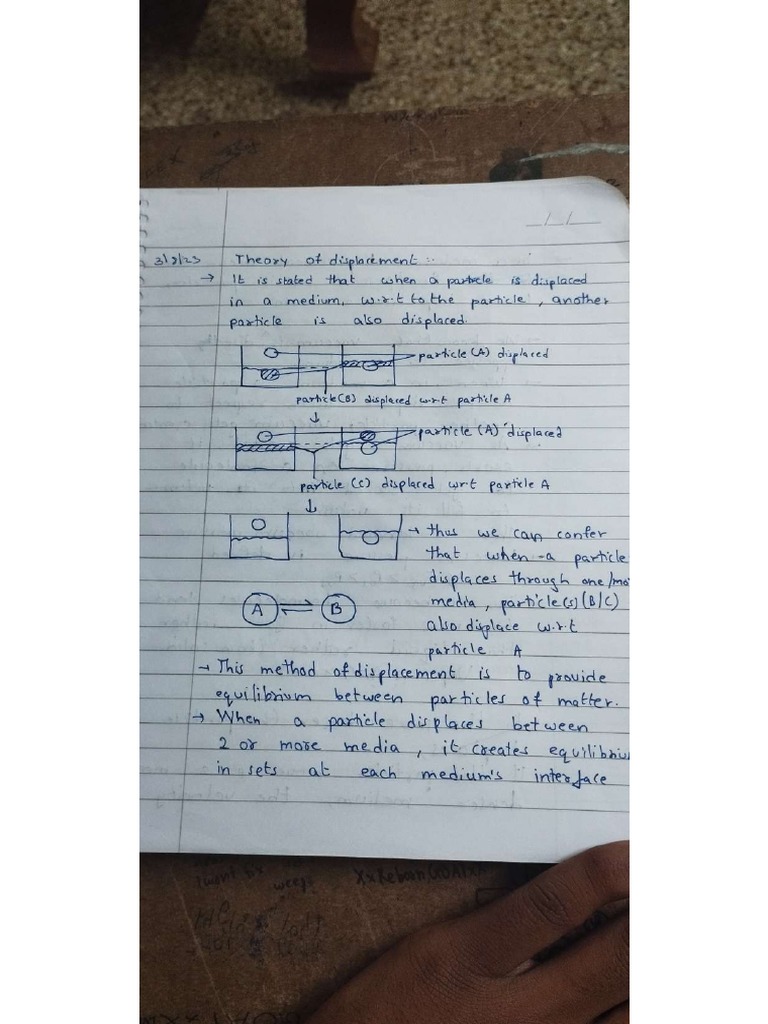 3/8/23 Theory of displacement :-
→ It is stated that when a particle is displaced
in a medium, w.r.t to the particle, another
particle is also displaced.
particle (A) displaced
particle (B) displaced w.r.t particle A
↓
particle (A) displaced
particle (C) displaced w.r.t particle A
↓
→ thus we can confer
that when a particle
displaces through one/mo
media, particle(s) (B/C)
also displace w.r.t
particle A
A ⇌ B
→ This method of displacement is to provide
equilibrium between particles of matter.
→ When a particle displaces between
2 or more media, it creates equilibriu
in sets at each medium's interface